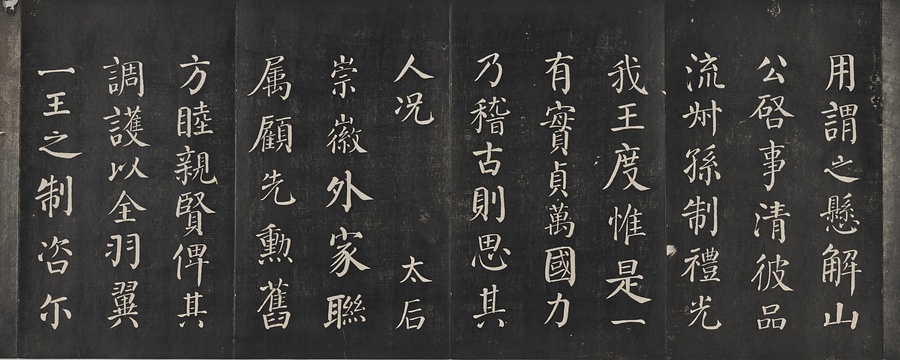 用謂之懸解山
公啓事清彼品
流叔孫制禮光
我王度惟是一
有實貞萬國力
乃稽古則思其
人况　太后
崇徽外家聯
属顧先勲舊
方睦親賢俾其
調護以全羽翼
一王之制咨尓